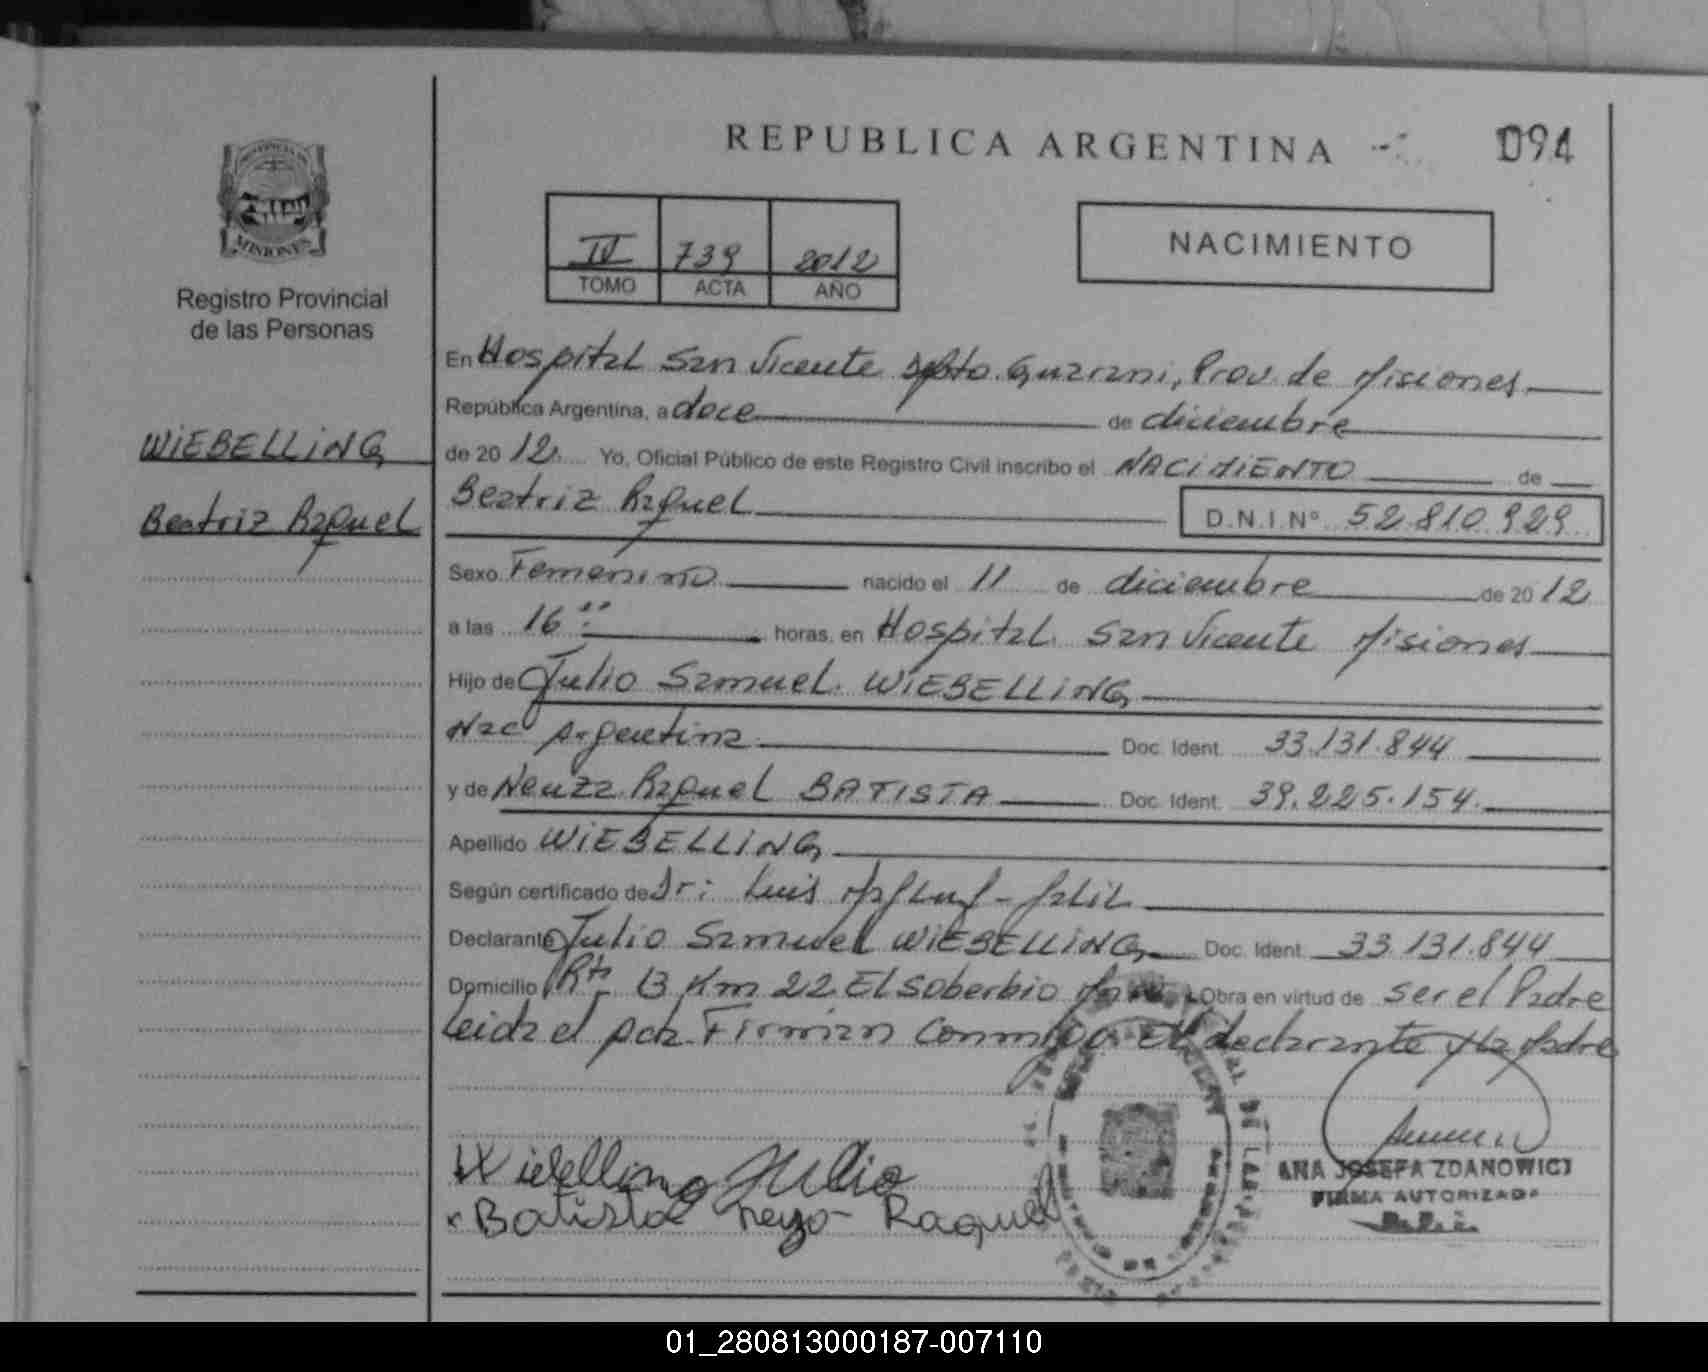 REPUBLICA ARGENTINA
094
PROVINCIA DE
MISIONES
Registro Provincial
de las Personas
IV 739 2012
TOMO ACTA AÑO
NACIMIENTO
WiEBELLiNG
Beatriz Raquel
En Hospital San Vicente Dpto. Guarani, Prov. de Misiones
República Argentina, a doce de diciembre
de 2012. Yo, Oficial Público de este Registro Civil inscribo el NACiMiENTO de
Beatriz Raquel D.N.I.Nº 52.810.929
Sexo Femenino nacido el 11 de diciembre de 2012
a las 16: horas, en Hospital San Vicente Misiones
Hijo de Julio Samuel WiEBELLiNG
Nac Argentina Doc. Ident. 33.131.844
y de Neuza Raquel BATISTA Doc. Ident. 39.225.154
Apellido WiEBELLiNG
Según certificado de Dr: Luis
Declarante Julio Samuel WiEBELLiNG Doc. Ident. 33.131.844
Domicilio Rta 13 Km 22 El Soberbio Obra en virtud de ser el Padre
Leida el acta Firman Conmigo El declarante y la Madre
Wiebelling Julio
Batista Raquel
ANA JOSEFA ZDANOWICZ
FIRMA AUTORIZADA
01_280813000187-007110